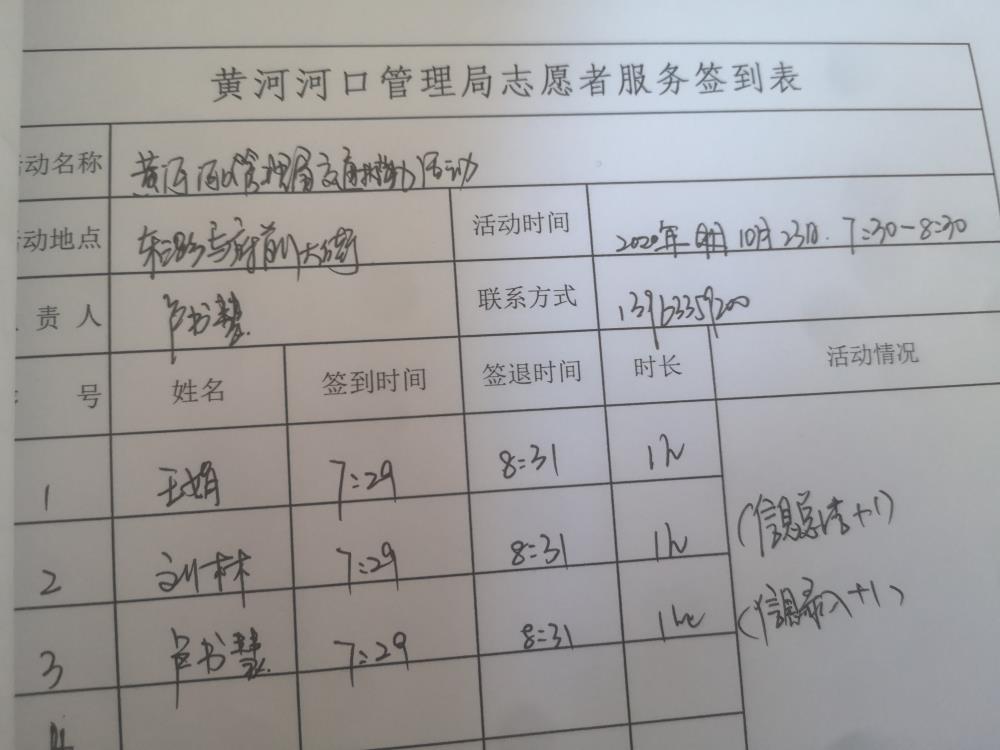 黄河河口管理局志愿者服务签到表
活动名称 黄河河口管理局交通协助活动
活动地点 东三路与府前大街 活动时间 2020年 10月23日. 7:30-8:30
责人 卢书慧 联系方式 13963359200
号 姓名 签到时间 签退时间 时长 活动情况
1 王娟 7:29 8:31 1h
2 刘林林 7:29 8:31 1h (信息总结+1)
3 卢书慧 7:29 8:31 1h (信息录入+1)
4